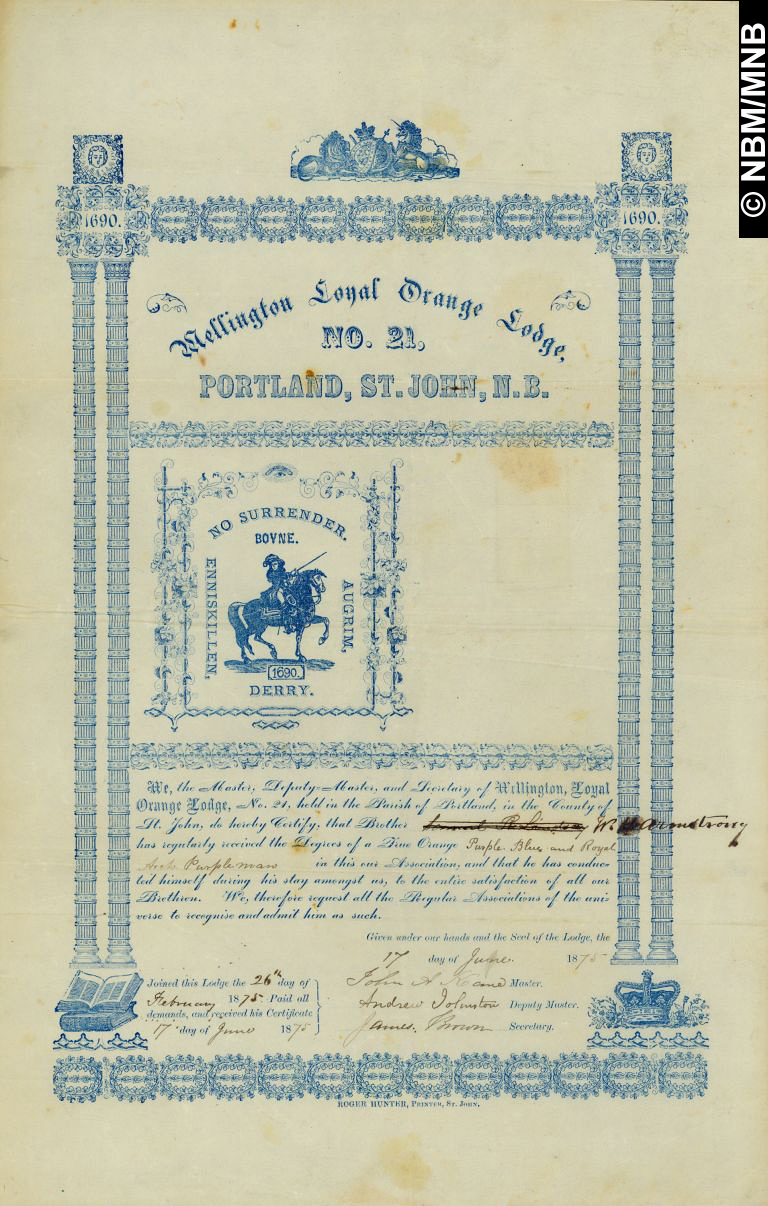 © NBM/MNB
1690. 1690.
Wellington Loyal Orange Lodge,
NO. 21,
PORTLAND, ST. JOHN, N.B.
NO SURRENDER.
BOYNE.
ENNISKILLEN,
AUGRIM,
1690.
DERRY.
We, the Master, Deputy-Master, and Secretary of Wellington, Loyal
Orange Lodge, No. 21, held in the Parish of Portland, in the County of
St. John, do hereby Certify, that Brother Armstrong
has regularly received the Degrees of a True Orange Purple. Blue and Royal
Arch Purpleman in this our Association, and that he has conduc-
ted himself during his stay amongst us, to the entire satisfaction of all our
Brethren. We, therefore request all the Regular Associations of the uni-
verse to recognise and admit him as such.
Given under our hands and the Seal of the Lodge, the
17 day of June. 1875
Joined this Lodge the 26th day of
February 1875. Paid all
demands, and received his Certificate
17 day of June 1875
John A Master.
Andrew Johnston Deputy Master.
James Brown Secretary.
ROGER HUNTER, PRINTER, ST. JOHN.